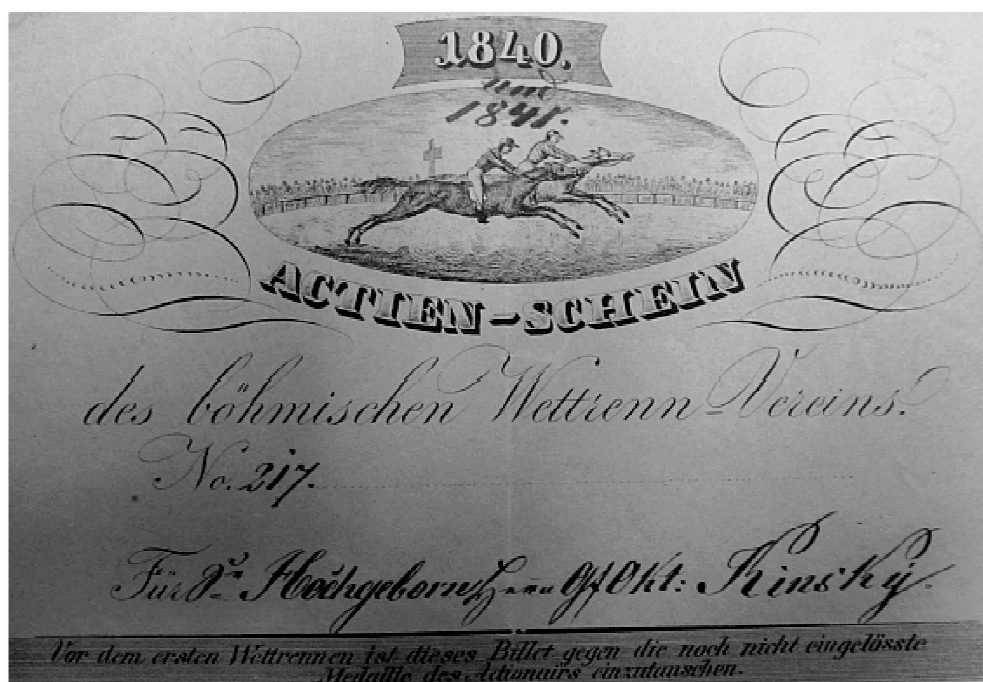 1840.
und
1841.
ACTIEN-SCHEIN
des böhmischen Wettrenn-Vereins.
No. 217.
Für Sr Hochgeborn Herrn Gf Okt: Kinsky.
Vor dem ersten Wettrennen ist dieses Billet gegen die noch nicht eingelösste
Medaille des Actionairs einzutauschen.